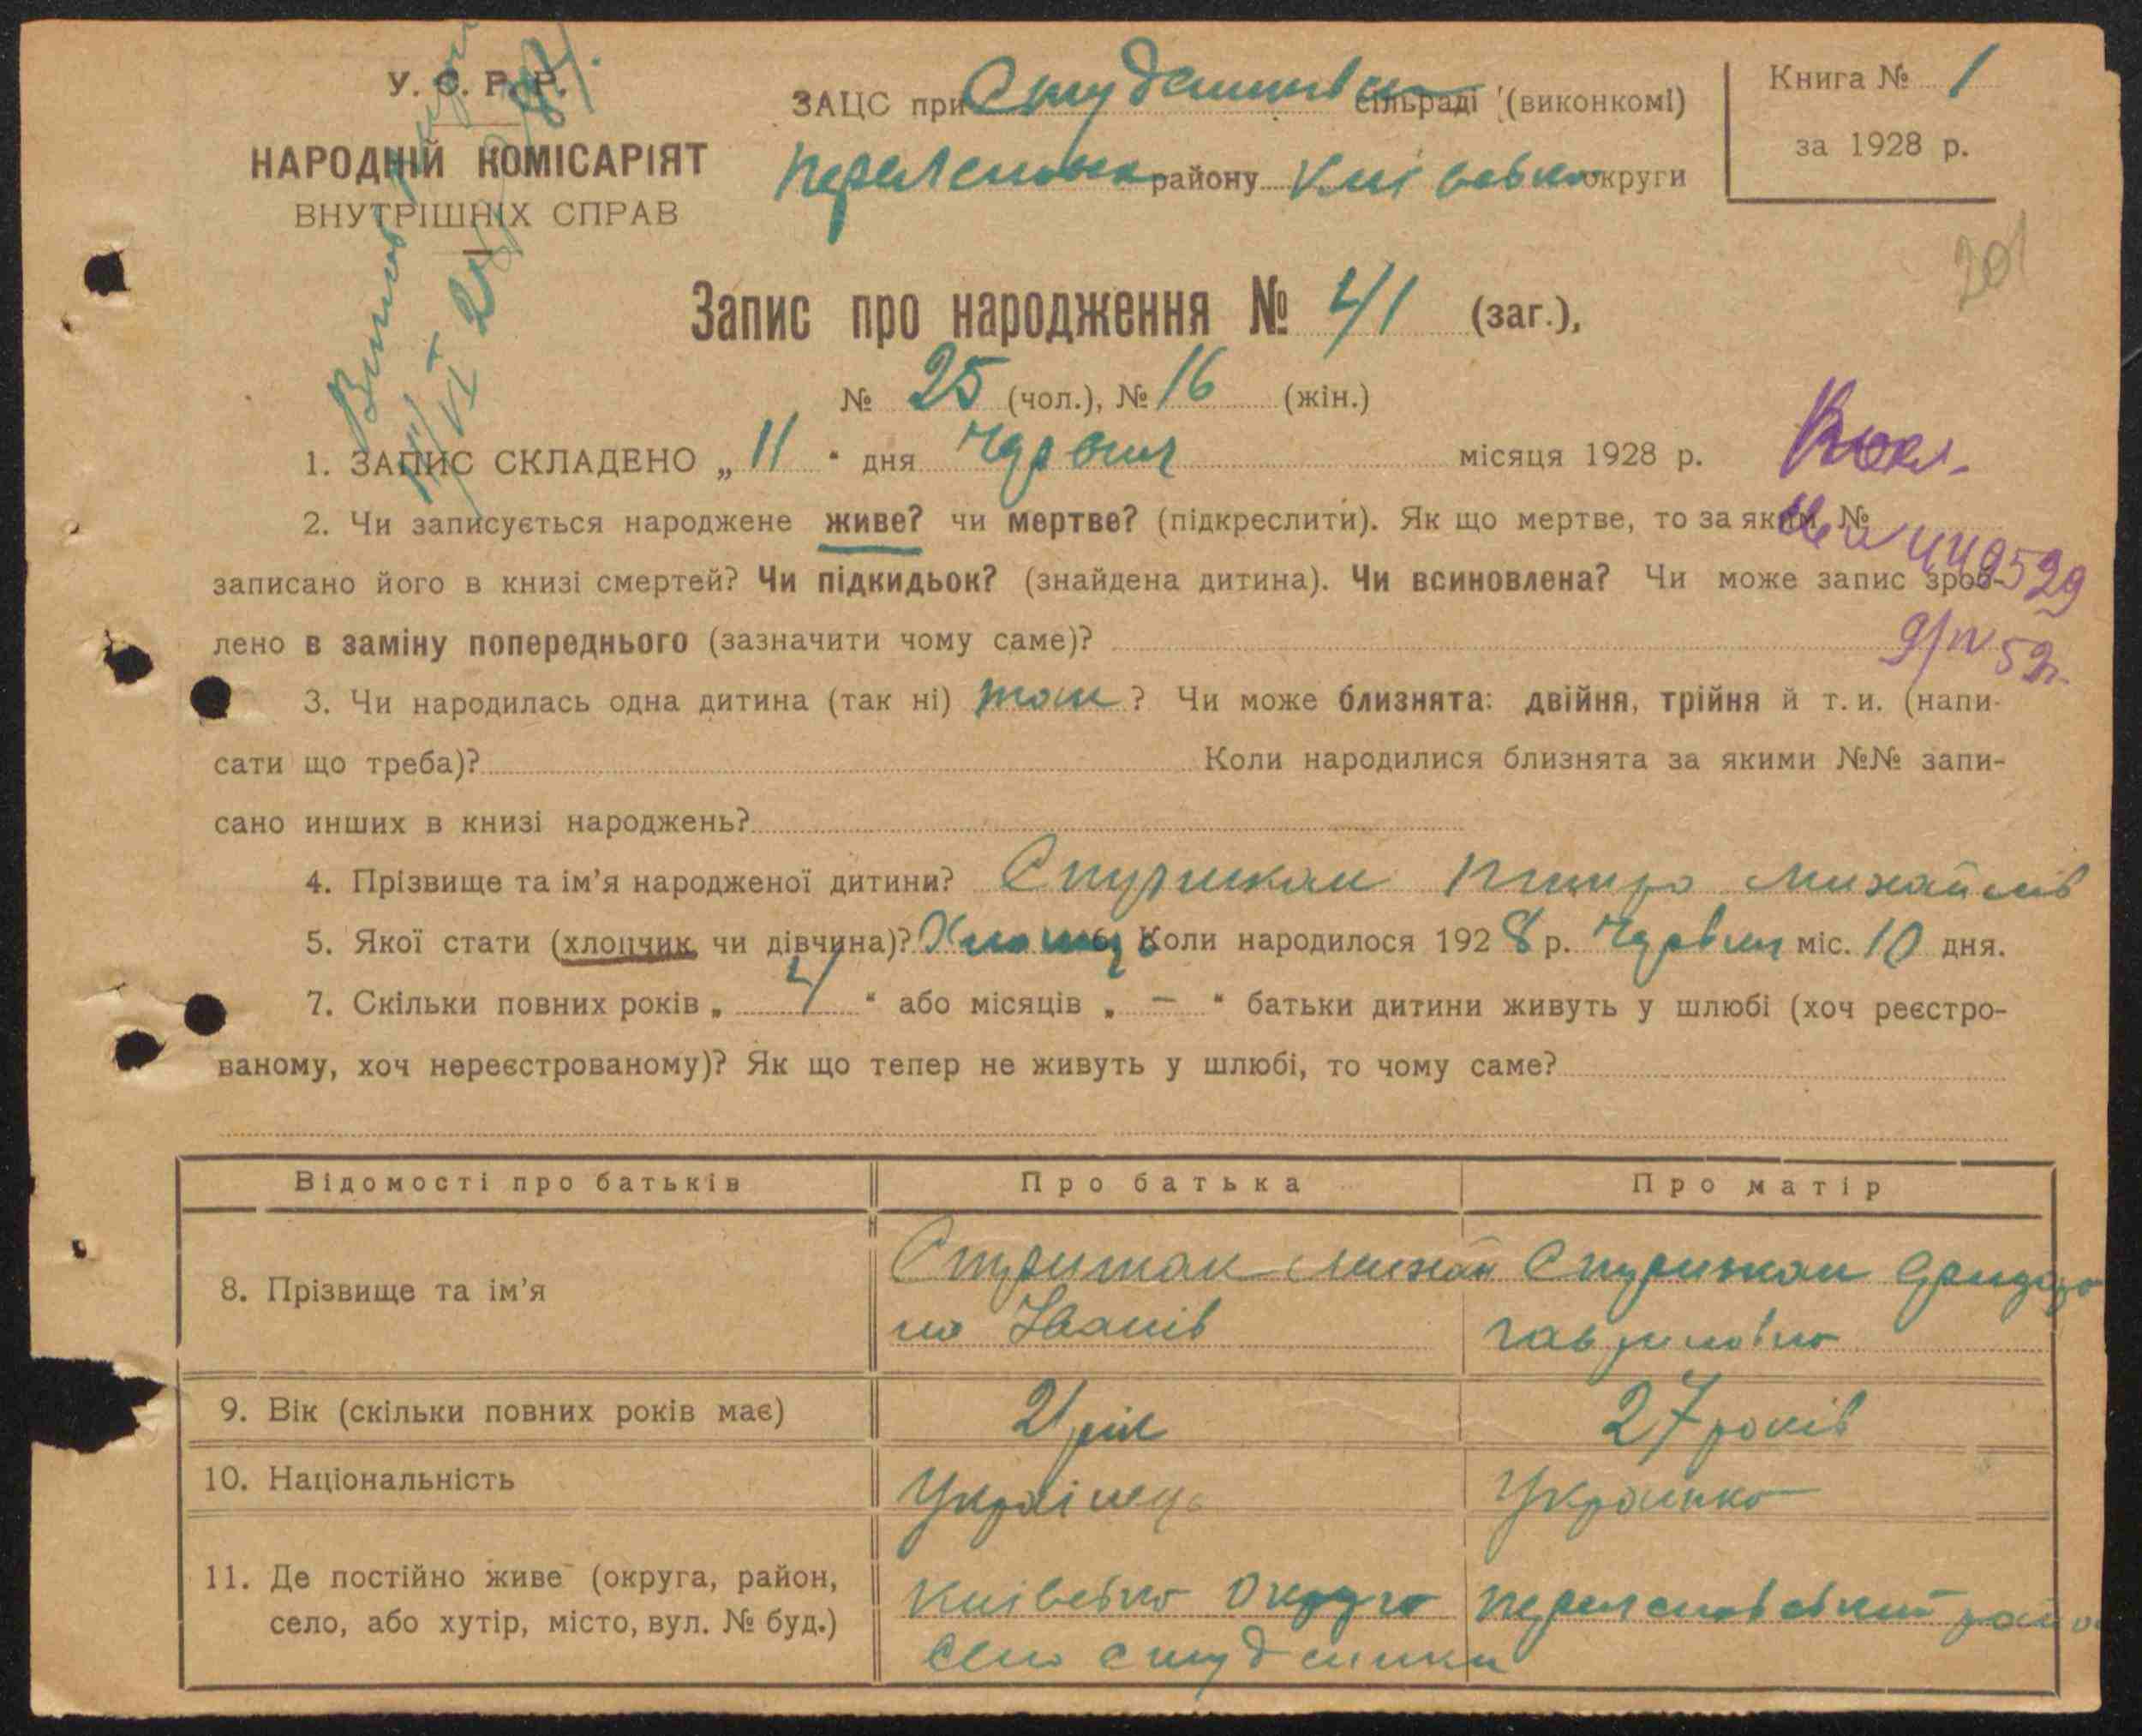 У. С. Р. Р.
НАРОДНІЙ КОМІСАРІЯТ
ВНУТРІШНІХ СПРАВ
ЗАЦС при сільраді (виконкомі)
району округи
Книга № 1
за 1928 р.
201
Запис про народження № 41 (заг.),
№ 25 (чол.), № 16 (жін.)
1. ЗАПИС СКЛАДЕНО „ 11 " дня Червня місяця 1928 р.
2. Чи записується народжене живе? чи мертве? (підкреслити). Як що мертве, то за яким №
записано його в книзі смертей? Чи підкидьок? (знайдена дитина). Чи всиновлена? Чи може запис зроб-
лено в заміну попереднього (зазначити чому саме)?
3. Чи народилась одна дитина (так ні) так ? Чи може близнята: двійня, трійня й т. и. (напи-
сати що треба)? Коли народилися близнята за якими №№ запи-
сано инших в книзі народжень?
4. Прізвище та ім'я народженої дитини? Стрижак Михайлів
5. Якої стати (хлопчик чи дівчина)? 6. Коли народилося 1928 р. Червня міс. 10 дня.
7. Скільки повних років „ 4 " або місяців „ — " батьки дитини живуть у шлюбі (хоч реєстро-
ваному, хоч нереєстрованому)? Як що тепер не живуть у шлюбі, то чому саме?
Відомості про батьків Про батька Про матір
8. Прізвище та ім'я Стрижак Михай Стрижак
ло Іванів Гавриловна
9. Вік (скільки повних років має) 21 рік 27 років
10. Національність Українець Украинка
11. Де постійно живе (округа, район,
село, або хутір, місто, вул. № буд.)
Київська округа район
село Студеники